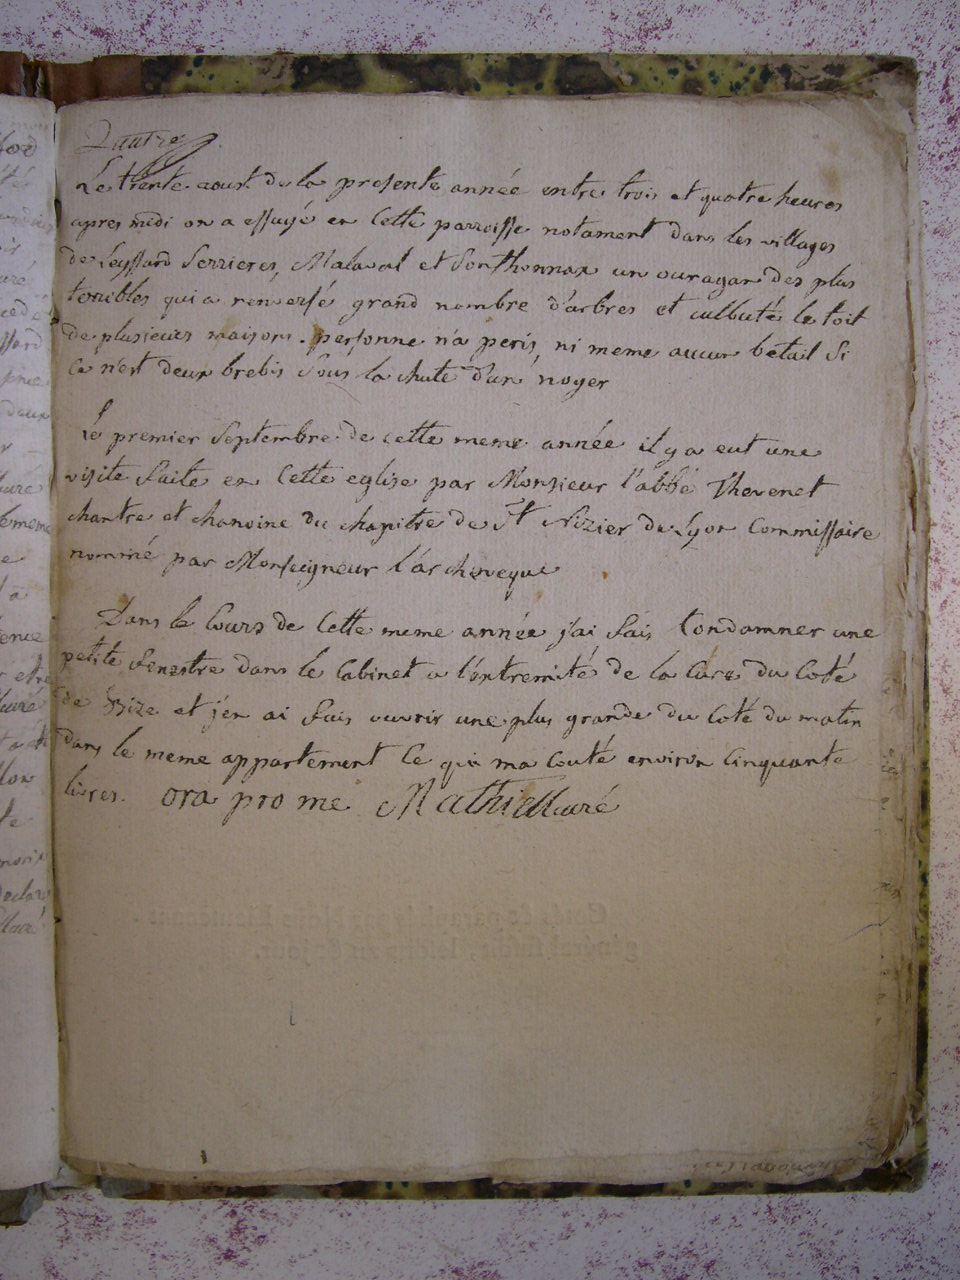 Le trente aoust de la presente année entre trois et quatre heures
apres midi on a essuyé en cette parroisse notament dans les villages
de Leyssard Serrieres, Malaval et Sonthonnax un ouragan des plus
terribles qui a renversé grand nombre d'arbres et culbuté le toit
de plusieurs maisons. personne n'a peris, ni meme aucun betail Si
ce n'est deux brebis sous la chute d'un noyer
le premier Septembre de cette meme année il y a eut une
visite faite en cette eglise par Monsieur l'abbé Thevenet
chantre et chanoine du chapitre de St Nizier de Lyon Commissaire
nommé par Monseigneur l'archeveque
Dans le Cours de Cette meme année j'ai fais Condamner une
petite fenestre dans le Cabinet a l'extremité de la Cure du Coté
de Bize et j'en ai fais ouvrir une plus grande du Coté du matin
dans le meme appartement Ce qui ma Couté environ Cinquante
livres. ora pro me Mathieu curé